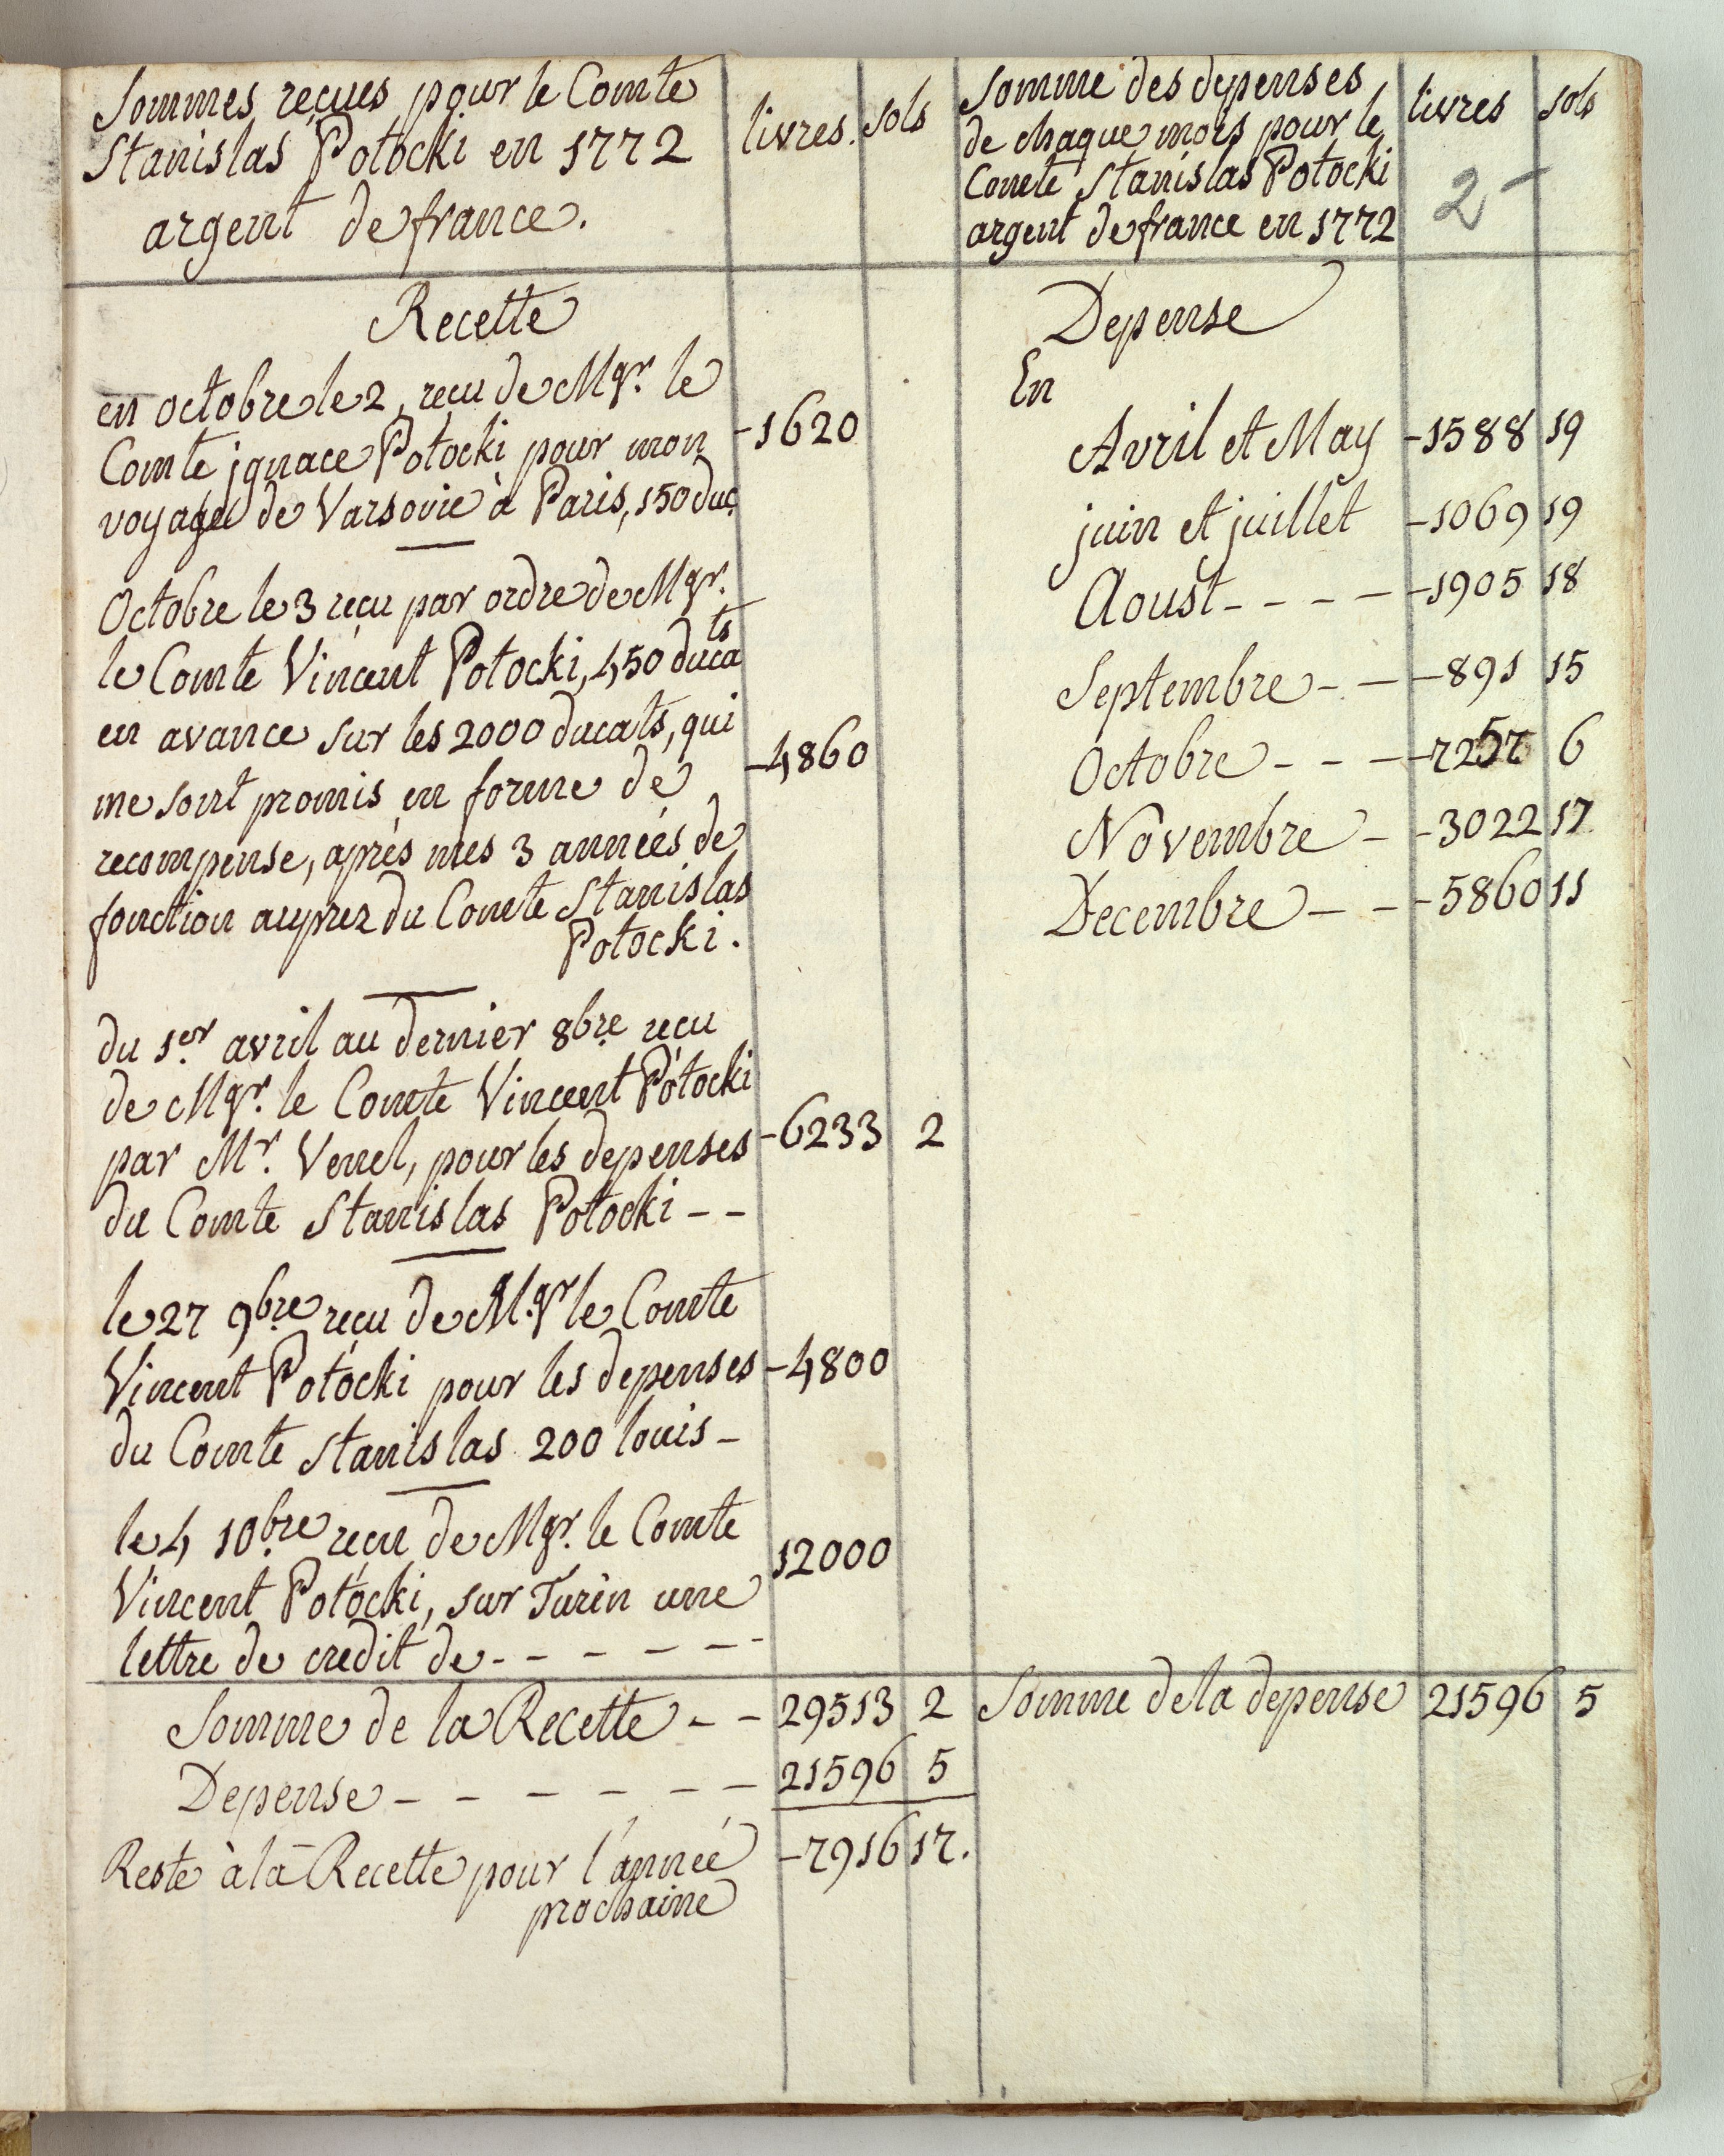 Sommes reçues pour le Comte
Stanislas Potocki en 1772
argent de france.
livres. sols
Recette
en octobre le 2, reçu de Mgr. le
Comte jgnace Potocki pour mon -1620
voyage de Varsovie à Paris, 150 duc.
Octobre le 3 reçu par ordre de Mgr.
le Comte Vincent Potocki, 450 ducats
en avance sur les 2000 ducats, qui
me sont promis en forme de -4860
recompense, après mes 3 années de
fonction auprez du Comte Stanislas
Potocki.
du 1er. avril au dernier 8bre. reçu
de Mgr. le Comte Vincent Potocki
par Mr. Venel, pour les depenses -6233 2
du Comte Stanislas Potocki - -
le 27 9bre reçu de M.gr le Comte
Vincent Potocki pour les depenses -4800
du Comte Stanislas 200 louis -
le 4 10bre. reçu de Mgr. le Comte
Vincent Potocki, sur Turin une 12000
lettre de credit de - - - - - -
Somme de la Recette - - 29513 2
Depense - - - - - - 21596 5
Reste à la Recette pour l'année -7916 17.
prochaine
Somme des depenses
de chaque mois pour le
Comte Stanislas Potocki
argent de france en 1772
livres sols
2 -
Depense
En
Avril et May -1588 19
juin et juillet -1069 19
Aoust - - - - -1905 18
Septembre - - -891 15
Octobre - - - -7257 6
Novembre - -3022 17
Decembre - - -5860 11
Somme de la depense 21596 5